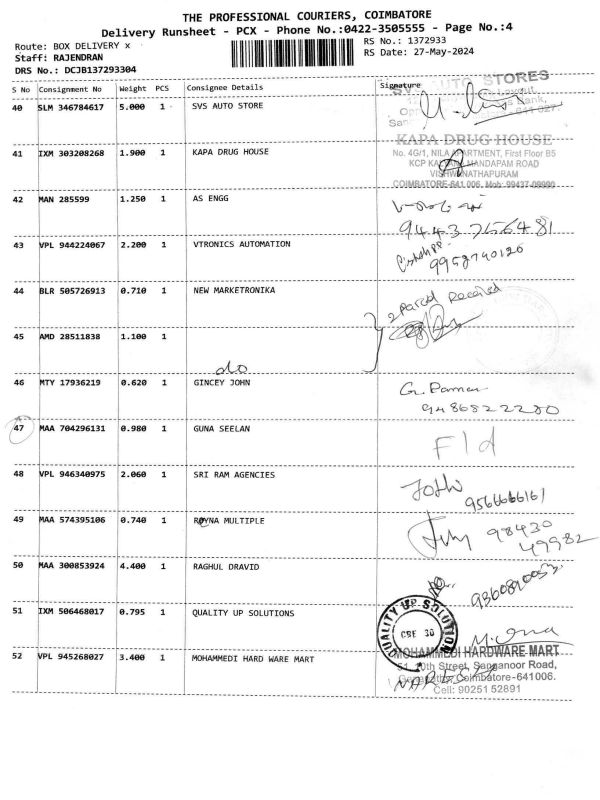 THE PROFESSIONAL COURIERS, COIMBATORE
Delivery Runsheet - PCX - Phone No.:0422-3505555 - Page No.:4
Route: BOX DELIVERY x
RS No.: 1372933
Staff: RAJENDRAN
RS Date: 27-May-2024
DRS No.: DCJB137293304
S No Consignment No Weight PCS Consignee Details Signature
STORES
40 SLM 346784617 5.000 1 SVS AUTO STORE
KAPA DRUG HOUSE
41 IXM 303208268 1.900 1 KAPA DRUG HOUSE
No. 4G/1, NILA APARTMENT, First Floor B5
KCP KALYANA MANDAPAM ROAD
VISHWANATHAPURAM
COIMBATORE-641 006. Mob: 99437-09990
42 MAN 285599 1.250 1 AS ENGG
9443756481
43 VPL 944224067 2.200 1 VTRONICS AUTOMATION
9952740126
44 BLR 505726913 0.710 1 NEW MARKETRONIKA
2 Parcel Received
45 AMD 28511838 1.100 1
do
46 MTY 17936219 0.620 1 GINCEY JOHN
9486822280
47 MAA 704296131 0.980 1 GUNA SEELAN
F1d
48 VPL 946340975 2.060 1 SRI RAM AGENCIES
9566666161
49 MAA 574395106 0.740 1 ROYNA MULTIPLE
98430
49982
50 MAA 300853924 4.400 1 RAGHUL DRAVID
51 IXM 506468017 0.795 1 QUALITY UP SOLUTIONS
QUALITY UP SOLUTION
CBE 30
52 VPL 945268027 3.400 1 MOHAMMEDI HARD WARE MART
MOHAMMEDI HARDWARE MART
51, 10th Street, Sanganoor Road,
Coimbatore-641006.
Cell: 90251 52891